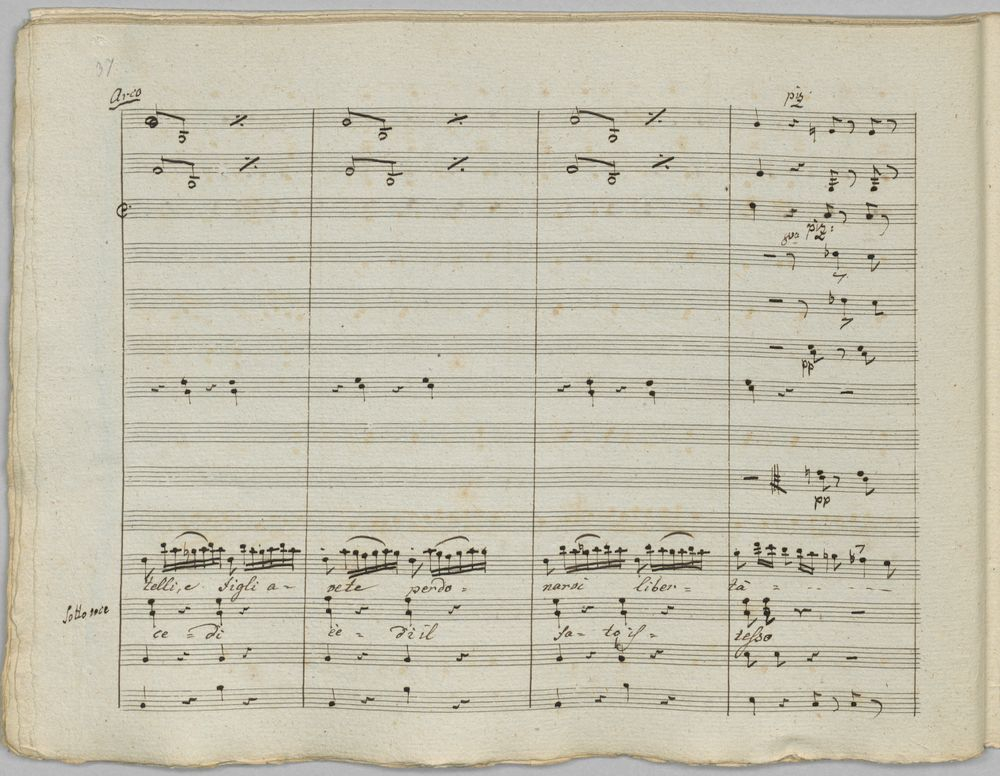 37
Arco
piz
piz:
8va
pp
pp
telli, e figli a- vete perdo = narvi liber = tà = - - - -
Sotto voce
ce = di ce = di il fa = to is = tesso